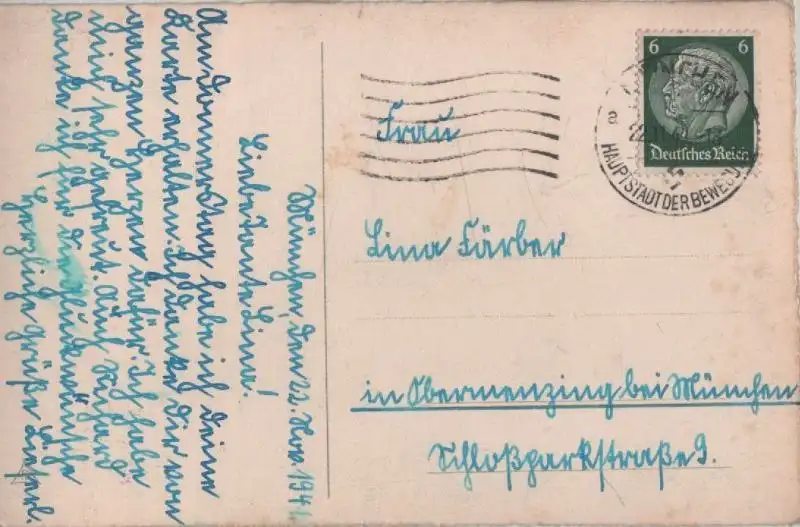 München, den 22. Nov. 1941.
Liebe Tante Lina!
Am Donnerstag habe ich deine
Karte erhalten. Ich danke dir von
ganzen Herzen dafür. Ich habe
mich sehr gefreut. Auch
danke ich für die Glückwünsche
Herzliche Grüße Lieserl.
6 6
Deutsches Reich
MÜNCHEN
HAUPTSTADT DER BEWEGU
Frau
Lina Färber
in Obermenzing bei München
Schloßparkstraße 9.